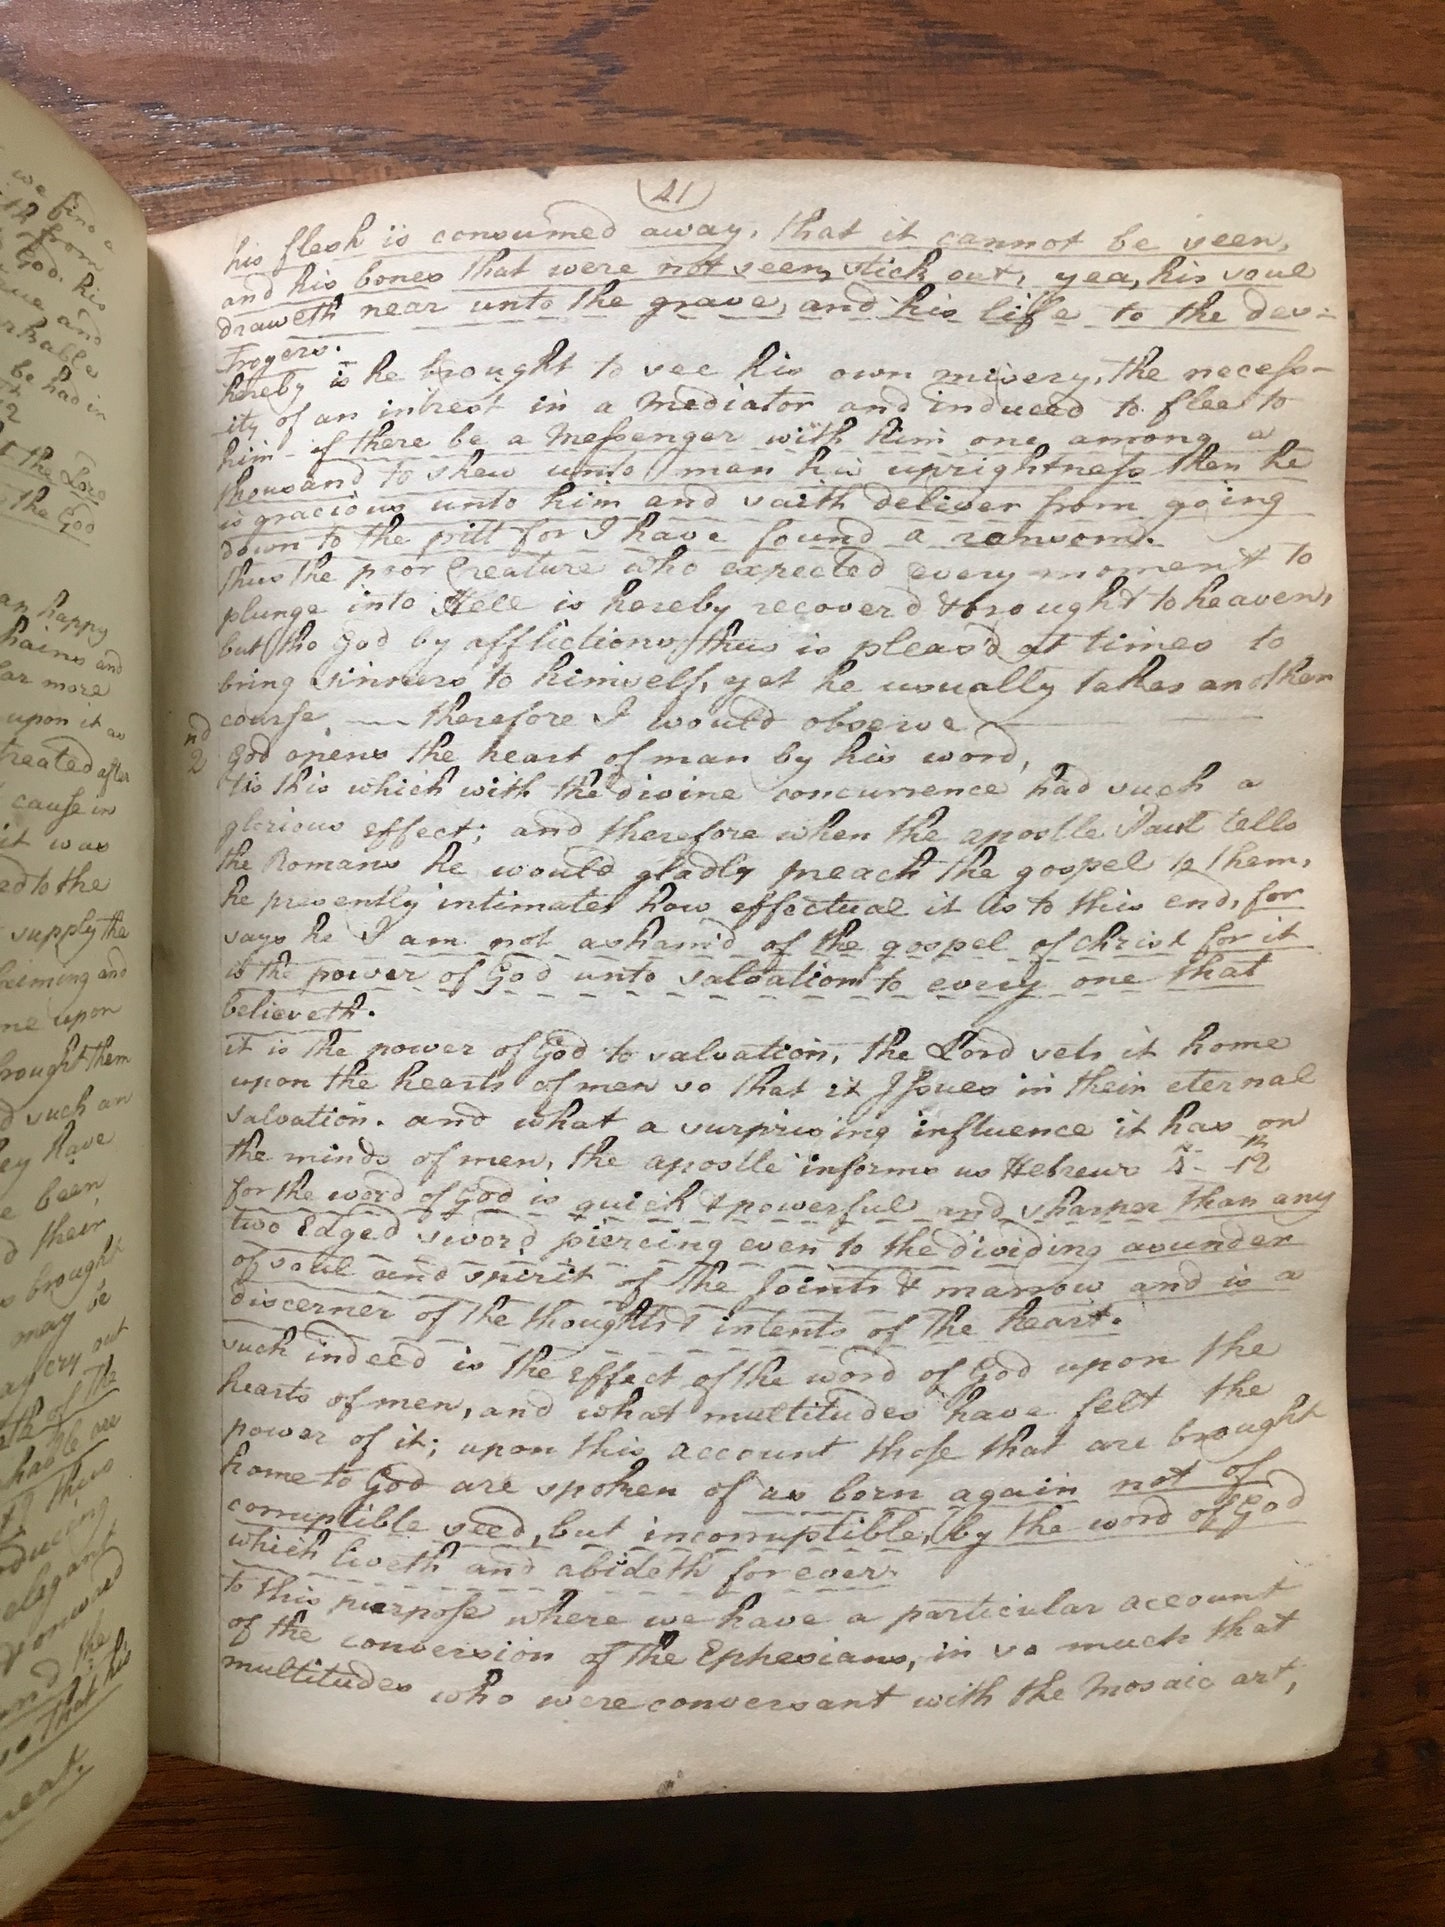 we find a
with from
God. his
and
rkable
be had in
12
the Lord
the God
an happy
hains and
far more
upon it as
treated after
cause in
it was
ed to the
supply the
aiming and
me upon
brought them
d such an
ey have
e been
d their
s brought
may be
ay cry out
th of the
this
elegant
the
so that his
neat.
41
his flesh is consumed away, that it cannot be seen,
and his bones that were not seen, stick out, yea, his soul
draweth near unto the grave, and his life to the des-
troyers.
hereby is he brought to see his own misery, the necess-
ity of an intrest in a Mediator and induced to flee to
him - if there be a Messenger with him one among a
thousand to shew unto man his uprightness then he
is gracious unto him and saith deliver from going
down to the pitt for I have found a ransom.
thus the poor Creature who expected every moment to
plunge into Hell is hereby recover'd & brought to heaven,
but tho God by afflictions thus is pleas'd at times to
bring sinners to himself, yet he usually takes another
course — therefore I would observe —
2nd God opens the heart of man by his word,
'tis this which with the divine concurrence had such a
glorious effect; and therefore when the apostle Paul tells
the Romans he would gladly preach the gospel to them,
he presently intimates how effectual it is to this end, for
says he I am not asham'd of the gospel of Christ for it
is the power of God unto salvation to every one that
believeth.
it is the power of God to salvation, the Lord sets it home
upon the hearts of men so that it Issues in their eternal
salvation. and what a surprising influence it has on
the minds of men, the apostle informs us Hebrews 4- 12th
for the word of God is quick & powerful and sharper than any
two Edged sword piercing even to the dividing asunder
of soul and spirit of the Joints & marrow and is a
discerner of the thoughts & intents of the heart.
such indeed is the Effect of the word of God upon the
hearts of men, and what multitudes have felt the
power of it; upon this account those that are brought
home to God are spoken of as born again not of
corruptible seed, but incorruptible, by the word of God
which liveth and abideth forever.
to this purpose where we have a particular account
of the conversion of the Ephesians, in so much that
multitudes who were conversant with the Mosaic art,